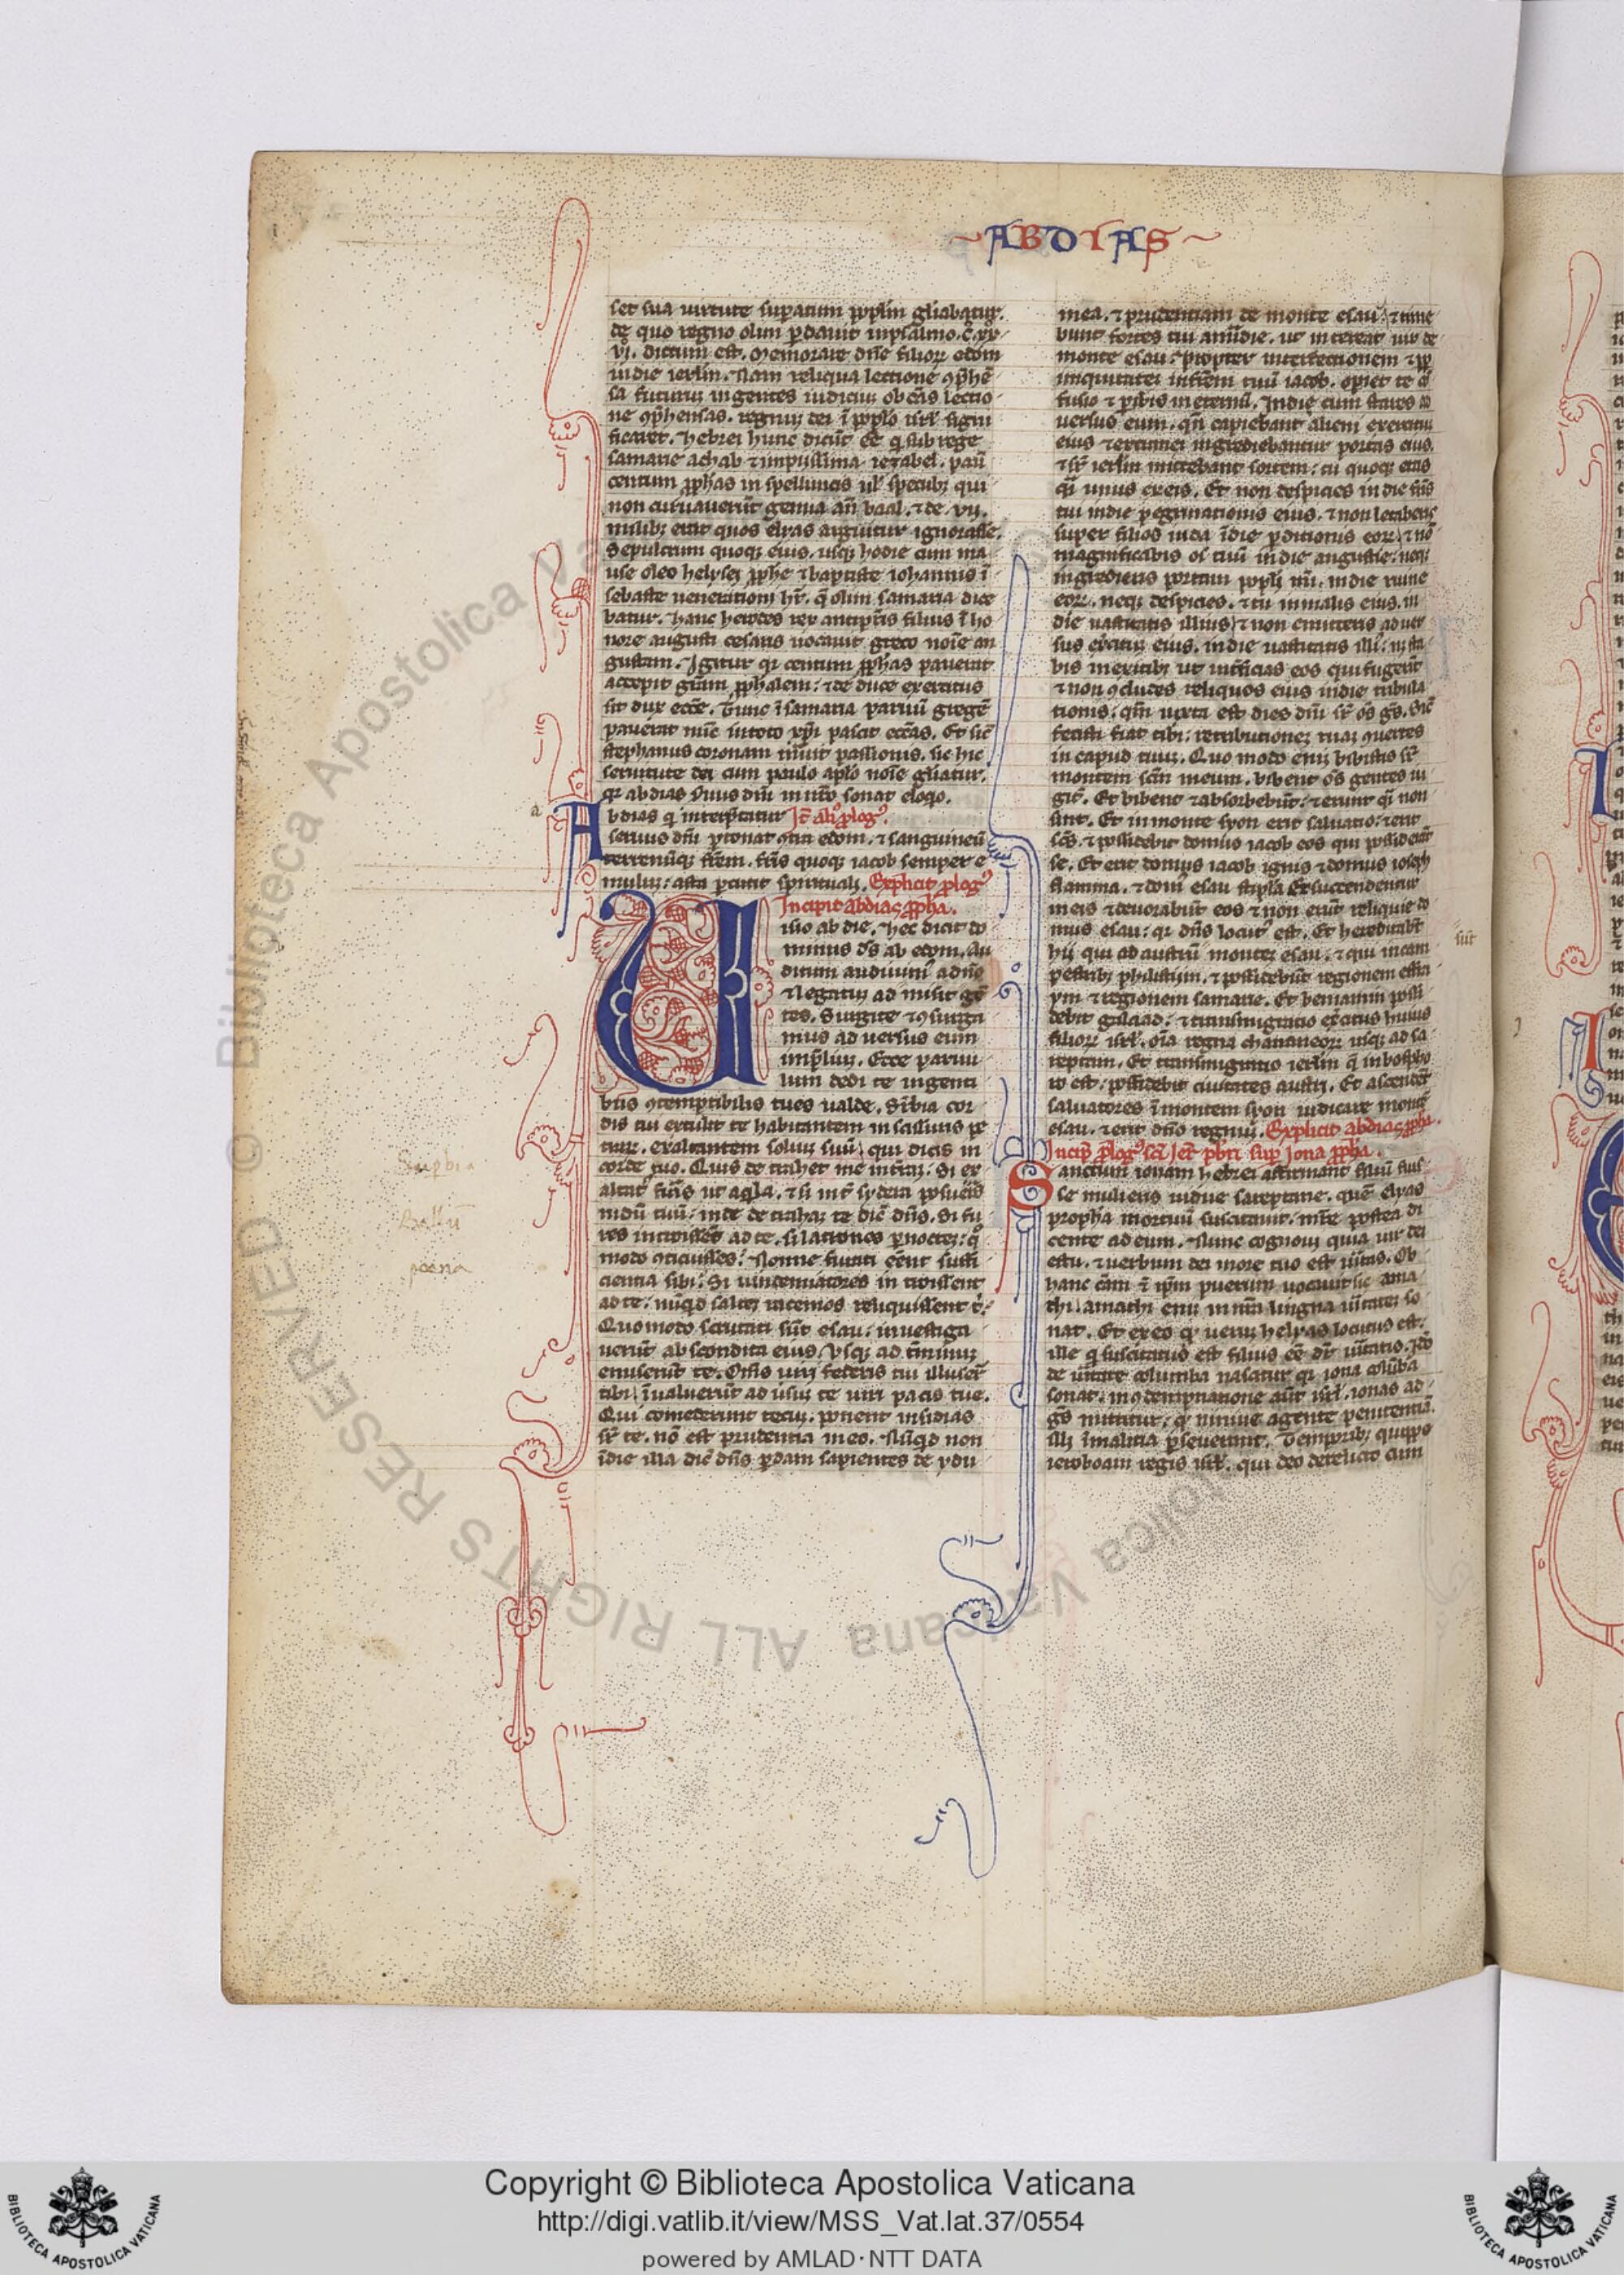 ~ABDIAS~
set sua uirtute supatum pplm gliabatur.
de quo regno olim
vi. dictum est. Memorare dne filior edom
in die ierlm. Nam reliqua lectione
sa futurum ingentes iudicium
ne regnum dei i pplo isrl signi
ficaret. Hebrei hunc dicut ee q sub rege
samarie achab & impiissima iezabel. pauit
centum pphas in speluncis ul specub; qui
non curuauerut genua an baal. & de. vij.
milib; erat quos elyas arguitur ignorasse.
Sepulcrum quoq; eius. usq; hodie cum ma
use oleo helysei pphe & baptiste iohannis i
sebaste uenerationi hr. q olim samaria dice
batur. Hanc herodes rex antipatris filius i ho
nore augusti cesaris uocauit greco noie au
gustam. Igitur qr centum pphas pauerat
accepit gram pphalem: & de duce exercitus
fit dux ecce. Tunc i samaria paruu grege
pauerat nunc in toto pascit eccas. Et sic
stephanus coronam passionis. sic hic
seruitute dei cum paulo aplo noie gliatur.
qr abdias suus dni in sonat eloqo.
a Abdias q interptatur
seruus dni ptonat ctra edom. & sanguineu
terrenuq; frem. fris quoq; iacob semper e
mulum: asta pcutit spirituali. Explicit plog
Incipit abdias ppha.
Uisio abdie. Hec dicit do
minus ds ab edom. Au
ditum audiuim a dno
& legatum ad misit ge
tes. Surgite & csurga
mus ad uersus eum
in plium. Ecce paruu
lum dedi te in genti
bus ctemptibilis tu es ualde. Supbia cor
dis tui extulit te habitantem in scissuris pe
trar. exaltantem solium suu: qui dicis in
corde tuo. Quis de trahet me in terram: Si ex
altat fuis ut aqla. & si int sydera posueis
nidu tuu: inde de traham te dic dns. Si fu
res introissent ad te. si latrones p noctem: quo
modo cticuisses: Nonne furati eent suffi
cientia sibi: Si uindemiatores in troissent
ad te: nuqd saltem racemos reliquissent t:
Quomodo scrutati sut esau: inuestiga
uerut abscondita eius. Usq; ad tminum
emiserut te. Oms uiri federis tui illuser
tibi: iualuerut ad usum te uiri pacis tue.
Qui comederunt tecum. ponent insidias
sr te. no est prudentia in eo. Nuqd non
i die illa dic dns pdam sapientes de ydu
mea. & prudentiam de monte esau: & time
bunt fortes tui a midie. ut intereat uir de
monte esau: propter interfectionem & pp
iniquitatem in frem tuu iacob. opiet te
fusio & pibis in eternu. In die cum stares ad
uersus eum. qn capiebant alieni exercitum
eius & extranei ingrediebantur portas eius.
& sr ierlm mittebant sortem: tu quoq; eras
qi unus ex eis. Et non despicies in die fris
tui in die pegrinationis eius. & non letaberis
super filios iuda i die pditionis eor. & no
magnificabis os tuu in die angustie: non
ingredieris portam ppli mi. in die ruine
eor. neq; despicies. & tu in malis eius. in
die uastitatis illius: & non emitteris aduer
sus exercitum eius. in die uastitatis illi: n sta
bis in exitib; ut interficias eos qui fugerit
& non cludes reliquos eius in die tribula
tionis: qm iuxta est dies dni sr os gs. Sic
fecisti fiat tibi: retributionem tuam
in capud tuum. Quo modo enim bibistis sr
montem scm meum. bibent os gentes iu
git. Et bibent & absorbebut: & erunt qi non
sint. Et in monte syon erit saluatio: & erit
scs. & possidebit domus iacob eos qui possiderat
se. Et erit domus iacob ignis & domus ioseph
flamma. & dom esau stipla Et succendentur
in eis & deuorabut eos & non erut reliquie do
mus esau: qr dns locut est. Et hereditabt
hij qui ad austru montem esau. & qui in cam
pestrib; philistijm. & possidebut regionem effra
ym & regionem samarie. Et beniamin possi
debit galaad: & transmigratio exercitus huius
filior isrl. oia regna chananeor usq; ad sa
reptam. Et transmigratio ierlm q in bosphoro
est: possidebit ciuitates austri. Et ascendet
saluatores i montem syon iudicare monte
esau. & erit dno regnum. Explicit abdias ppha.
Incip plog sci Ier pbri sup Iona ppha.
Sanctum ionam hebrei affirmant filiu fuis
se mulieris uidue sareptane. que elyas
propha mortuu suscitauit. mre postea di
cente ad eum. Nunc cognoui quia uir dei
es tu. & uerbum dei in ore tuo est uitas. Ob
hanc cam & ipm puerum uocauit sic ama
thi. amathi enim in nra lingua uitatem so
nat. Et ex eo q uerum helyas locutus est:
ille q suscitatus est filius ee dr uitatis.
de uitate columba nascatur qr iona coluba
sonat. in demptnatione aut isrl. ionas ad
gs mittitur: q niniue agente penitentia.
illi i malitia pseuerant. Temporib; quippe
ieroboam regis isrl. qui deo derelicto cum
Supbia
poena
Copyright © Biblioteca Apostolica Vaticana
http://digi.vatlib.it/view/MSS_Vat.lat.37/0554
powered by AMLAD·NTT DATA
BIBLIOTECA APOSTOLICA VATICANA
BIBLIOTECA APOSTOLICA VATICANA
© Biblioteca Apostolica Vaticana ALL RIGHTS RESERVED